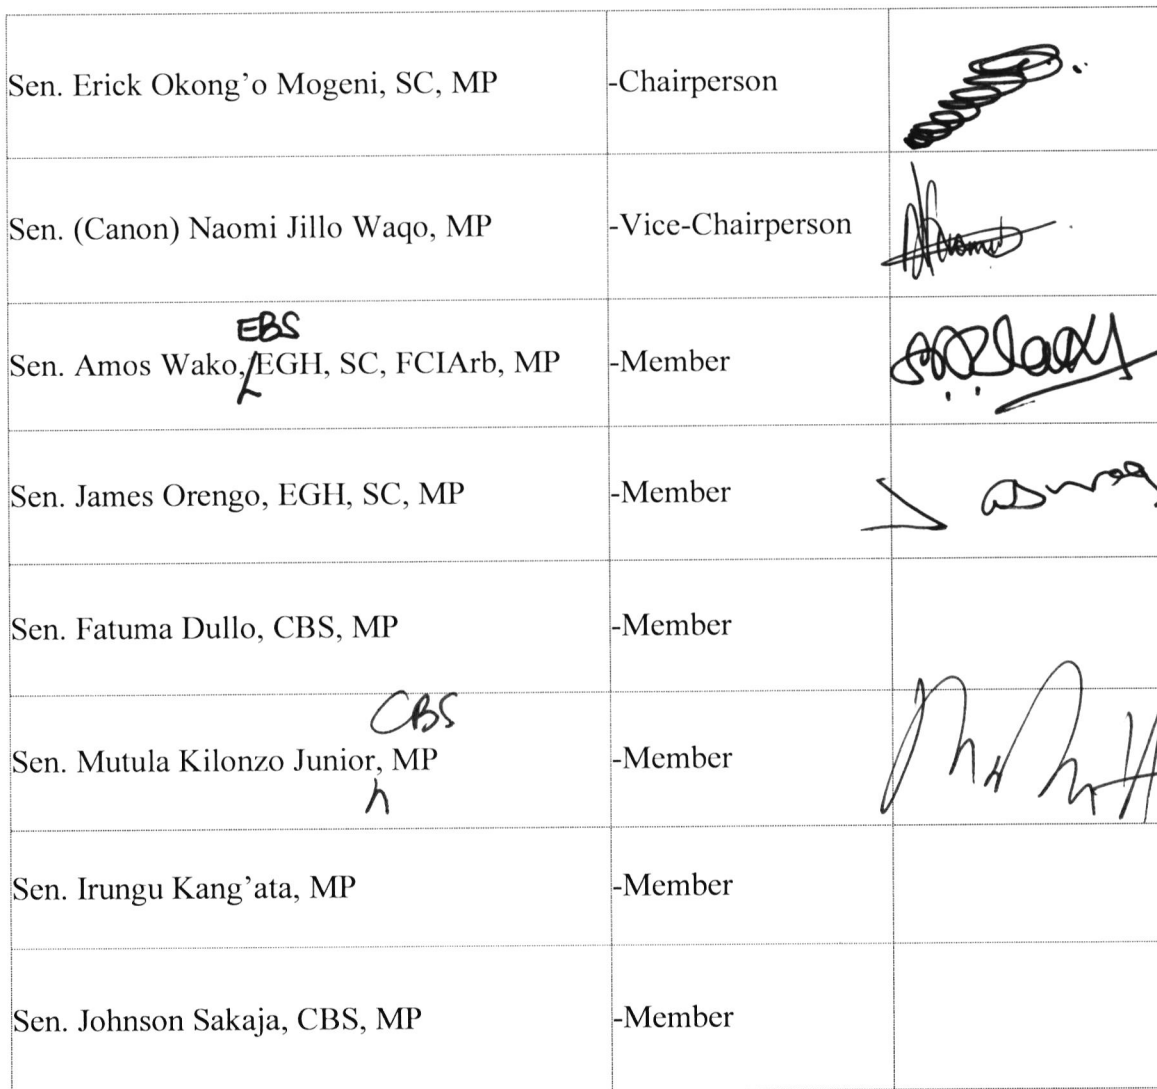 Sen. Erick Okong’o Mogeni, SC, MP -Chairperson
Sen. (Canon) Naomi Jillo Waqo, MP -Vice-Chairperson
EBS
Sen. Amos Wako, EGH, SC, FCIArb, MP -Member
Sen. James Orengo, EGH, SC, MP -Member
Sen. Fatuma Dullo, CBS, MP -Member
CBS
Sen. Mutula Kilonzo Junior, MP -Member
Sen. Irungu Kang’ata, MP -Member
Sen. Johnson Sakaja, CBS, MP -Member